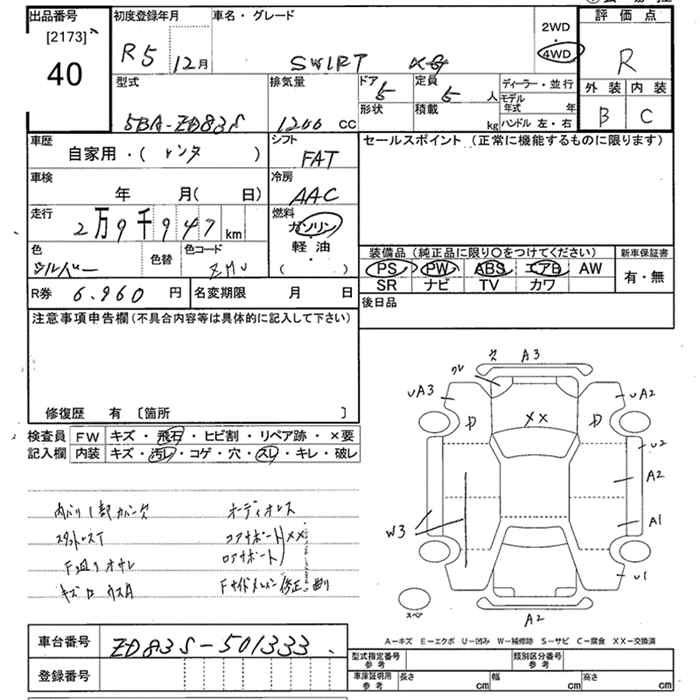 出品番号
[2173]
40
初度登録年月
R5 12月
車名・グレード
SWIFT XG
2WD
・
4WD
評価点
R
外装 内装
B C
型式
5BA-ZD83S
排気量
1200 CC
ドア 5
形状
定員 5 人
積載 kg
ディーラー・並行
モデル年式 年
ハンドル 左・右
車歴
自家用・( レンタ )
シフト
FAT
セールスポイント (正常に機能するものに限ります)
車検
年 月( 日)
冷房
AAC
走行
2万9千947 km
燃料
ガソリン
軽・油
( )
色
シルバー
色替
色コード
R券 6.960 円
名変期限 月 日
装備品 (純正品に限り○をつけてください)
PS PW ABS エアB AW
SR ナビ TV カワ
新車保証書
有・無
後日品
注意事項申告欄 (不具合内容等は具体的に記入して下さい)
修復歴 有 [箇所 ]
検査員記入欄
FW キズ・飛石・ヒビ割・リペア跡・×要
内装 キズ・汚レ・コゲ・穴・スレ・キレ・破レ
内バリ1部カバー欠
オーディオレス
スタットレスT
コアサポート XX
ロアサポート
Fサイドメンバー修正・曲り
A3
UA3
UA2
XX
U2
A2
A1
W3
U1
A2
スペア
A-キズ E-エクボ U-凹み W-補修跡 S-サビ C-腐食 XX-交換済
車台番号 ZD83S-501333
登録番号
型式指定番号 参考
類別区分番号 参考
車庫証明用 参考 長さ cm 幅 cm 高さ cm